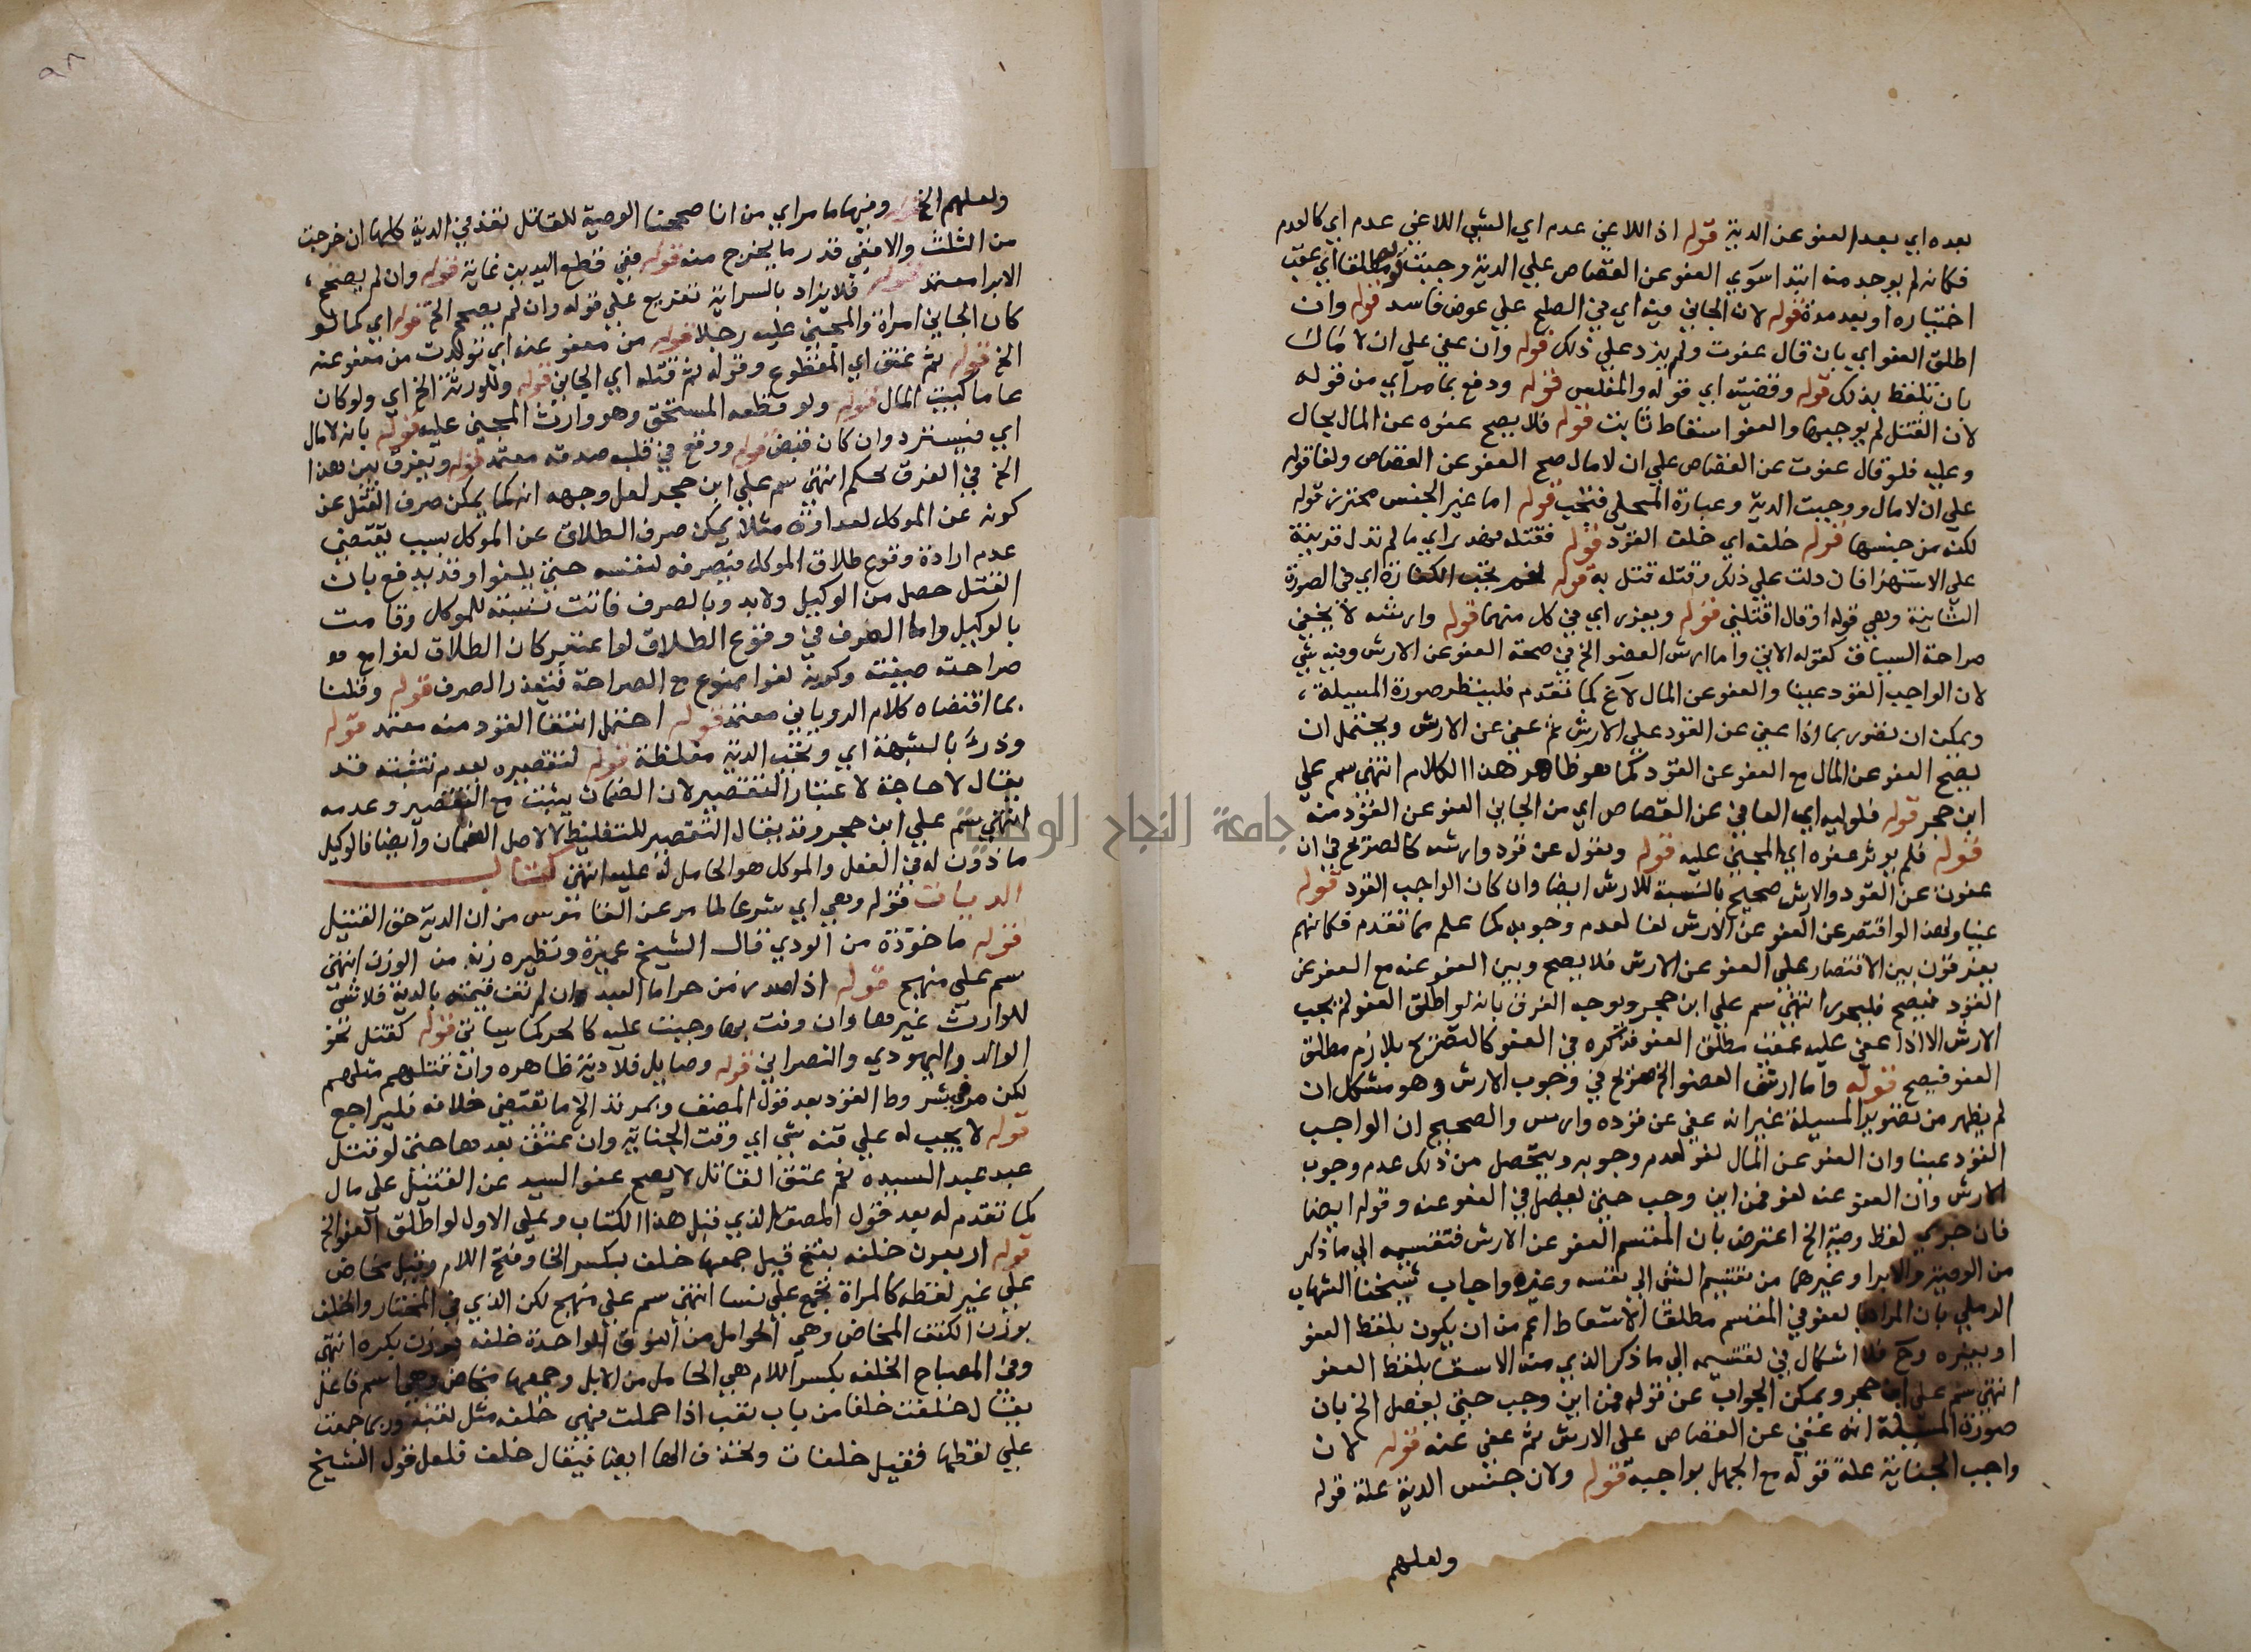 بعده اي بعد العفو عن الدية قوله اذ اللاغي عدم اي الشي اللاغي عدم اي كالعدم
فكانه لم يوجد منه ابتدا سوي العفو عن القصاص علي الدية وجبت قوله مطلقا اي عقب
اختياره او بعد مدة قوله لان الجاني فيه اي في الصلح علي عوض فاسد قوله وان
اطلق العفو اي بان قال عفوت ولم يزد علي ذلك قوله وان عفي علي ان لا مال
بان تلفظ بذلك قوله وقضيته اي قوله والمفلس قوله ودفع بما مر اي من قوله
لان القتل لم يوجبها والعفو اسقاط ثابت قوله فلا يصح عفوه عن المال بحال
وعليه فلو قال عفوت عن القصاص علي ان لا مال صح العفو عن القصاص ولغا قوله
علي ان لا مال ووجبت الدية وعبارة المحلي فتجب قوله اما غير الجنس محترز قوله
لكنه من جنسها قوله خلفه اي خلف القود قوله فقتله فهدر اي ما لم تدل قرينة
علي الاستهزا فان دلت علي ذلك وقتله قتل به قوله نعم تجب الكفارة اي في الصورة
الثانية وهي قوله او قال اقتلني قوله ويعزر اي في كل منهما قوله وارشه لا يخفي
صراحة السياق كقوله الاتي واما ارش العضو الخ في صحة العفو عن الارش وفيه شي
لان الواجب القود عينا والعفو عن المال لاغ كما تقدم فلينظر صورة المسيلة
ويمكن ان تصور بما اذا عفي عن القود علي الارش ثم عفي عن الارش ويحتمل ان
يصح العفو عن المال مع العفو عن القود كما هو ظاهر هذا الكلام انتهي سم علي
ابن حجر قوله فلوليه اي العافي عن القصاص اي من الجاني العفو عن القود منه
قوله فلم يوثر عفوه اي المجني عليه قوله وبقول عن قود وارشه كالصريح في ان
عفوت عن القود والارش صحيح بالنسبة للارش ايضا وان كان الواجب القود قوله
عينا ولهذا لو اقتصر عن العفو عن الارش لغا لعدم وجوبه كما علم مما تقدم فكانهم
يفرقون بين الاقتصار علي العفو عن الارش فلا يصح وبين العفو عنه مع العفو عن
القود فيصح فليحرر انتهي سم علي ابن حجر ويوجه الفرق بانه لو اطلق العفو لم يجب
الارش الا اذا عفي عليه عقب مطلق العفو فذكره في العفو كالتصريح بلازم مطلق
العفو فيصح قوله واما ارش العضو الخ صريح في وجوب الارش وهو مشكل ان
لم يظهر من تصوير المسيلة غير انه عفي عن قوده وارس والصحيح ان الواجب
القود عينا وان العفو عن المال لغو لعدم وجوبه ويتحصل من ذلك عدم وجوب
الارش وان العفو عنه لغو فمن اين وجب حتي يفصل في العفو عنه وقوله ايضا
فان جري لفظ وصية الخ اعترض بان المقسم العفو عن الارش فتقسيمه الي ما ذكر
من الوصية والابرا وغيرهما من تقسيم الشي الي نفسه وغيره واجاب شيخنا الشهاب
الرملي بان المراد بالعفو في المقسم مطلقا الاسقاط اعم من ان يكون بلفظ العفو
او بغيره وح فلا اشكال في تقسيمه الي ما ذكر الذي منه الاسقا بلفظ العفو
انتهي سم علي ابن حجر ويمكن الجواب عن قوله فمن اين وجب حتي يفصل الخ بان
صورة المسيلة انه عفي عن القصاص علي الارش ثم عفي عنه قوله لان
واجب الجناية علة قوله مع الجهل بواجبه قوله ولان جنس الدية علة قوله
ولعلهم
٩٨
ولعلهم الخ قوله وفيها ما مر اي من انا صححنا الوصية للقاتل نفذ في الدية كلها ان خرجت
من الثلث والا ففي قدر ما يخرج منه قوله ففي قطع اليدين غاية قوله وان لم يصح
الابرا معتمد قوله فلا يزاد بالسراية تفريع علي قوله وان لم يصح الخ قوله اي كما لو
كان الجاني امراة والمجني عليه رجلا قوله من معفو عنه اي تولدت من معفو عنه
الخ قوله ثم عتق اي المقطوع وقوله ثم قتله اي الجاني قوله وللورثة الخ اي ولو كان
عاما كبيت المال قوله ولو قطعه المستحق وهو وارث المجني عليه قوله بانه لا مال
اي فيسترد وان كان قبض قوله ووقع في قلبه صدقه معتمد قوله ويفرق بين هذا
الخ في الفرق تحكم انتهي سم علي ابن حجر لعل وجهه انه كما يمكن صرف القتل عن
كونه عن الموكل لعداوة مثلا يمكن صرف الطلاق عن الموكل بسبب يقتضي
عدم ارادة وقوع طلاق الموكل فيصرفه لنفسه حتي يلغوا وقد يدفع بان
القتل حصل من الوكيل ولا بد وبالصرف فاتت نسبته للموكل وقامت
بالوكيل واما الصرف في وقوع الطلاق لو اعتبر كان الطلاق لغوا مع مو
صراحة صيغته وكونه لغوا ممنوع مع الصراحة فتعذر الصرف قوله وقلنا
بما اقتضاه كلام الروياني معتمد قوله احتمل انتفا القود منه معتمد قوله
وذرئ بالشبهة اي وتجب الدية مغلظة قوله لتقصيره بعدم تثبته قد
يقال لا حاجة لاعتبار التقصير لان الضمان يثبت مع التقصير وعدمه
انتهي سم علي ابن حجر وقد يقال التقصير للتغليظ لا لاصل الضمان وايضا فالوكيل
ماذون له في الفعل والموكل هو الحامل له عليه انتهي كتاب
الديات قوله وهي اي شرعا لما مر عن الغا نفرس من ان الدية حق القتيل
قوله ماخوذة من الودي قال الشيخ عميرة ونظيره زنة من الوزن انتهي
سم علي منهج قوله اذا صدر من حر اما العبد وان لم تف قيمته بالدية فلا شي
للوارث غيرها وان وفت بها وجبت عليه كالحر كما سياتي قوله كقتل نحو
الوالد واليهودي والنصراني قوله وصايل فلا دية ظاهره وان قتلهم مثلهم
لكن مر في شروط القود بعد قول المصنف وبمرتد الخ ما يقتضي خلافه فليراجع
قوله لا يجب له علي قنه شي اي وقت الجناية وان عتق بعدها حتي لو قتل
عبد عبد السيده ثم عتق القاتل لا يصح عفو السيد عن القتيل علي مال
كما تقدم له بعد قول المصف الذي قبل هذا الكتاب وعلي الاول لو اطلق العفو الخ
قوله اربعون خلفة بفتح قيل جمعها خلف بكسر الخا وفتح اللام وقيل مخاض
علي غير لفظه كالمراة تجمع علي نسا انتهي سم علي منهج لكن الذي في المختار والخلف
بوزن الكتف المخاض وهي الحوامل من النوق الواحدة خلفه بوزن بكره انتهي
وفي المصباح الخلفه بكسر اللام هي الحامل من الابل وجمعها مخاض وهي اسم فاعل
يقال خلفت خلفا من باب تعب اذا حملت فهي خلفه مثل تعبة وربما جمعت
علي لفظها فقيل خلفات وتحذف الها ايضا فيقال خلف فلعل قول الشيخ